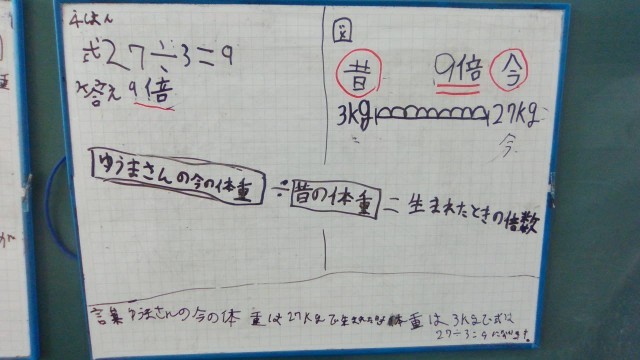 4はん
式27÷3=9
答え9倍
図
昔 9倍 今
3kg 27kg
今
ゆうまさんの今の体重÷昔の体重=生まれたときの倍数
言葉ゆうまさんの今の体重は27kgで生まれた 体重は3kgで式は
27÷3=9になります。